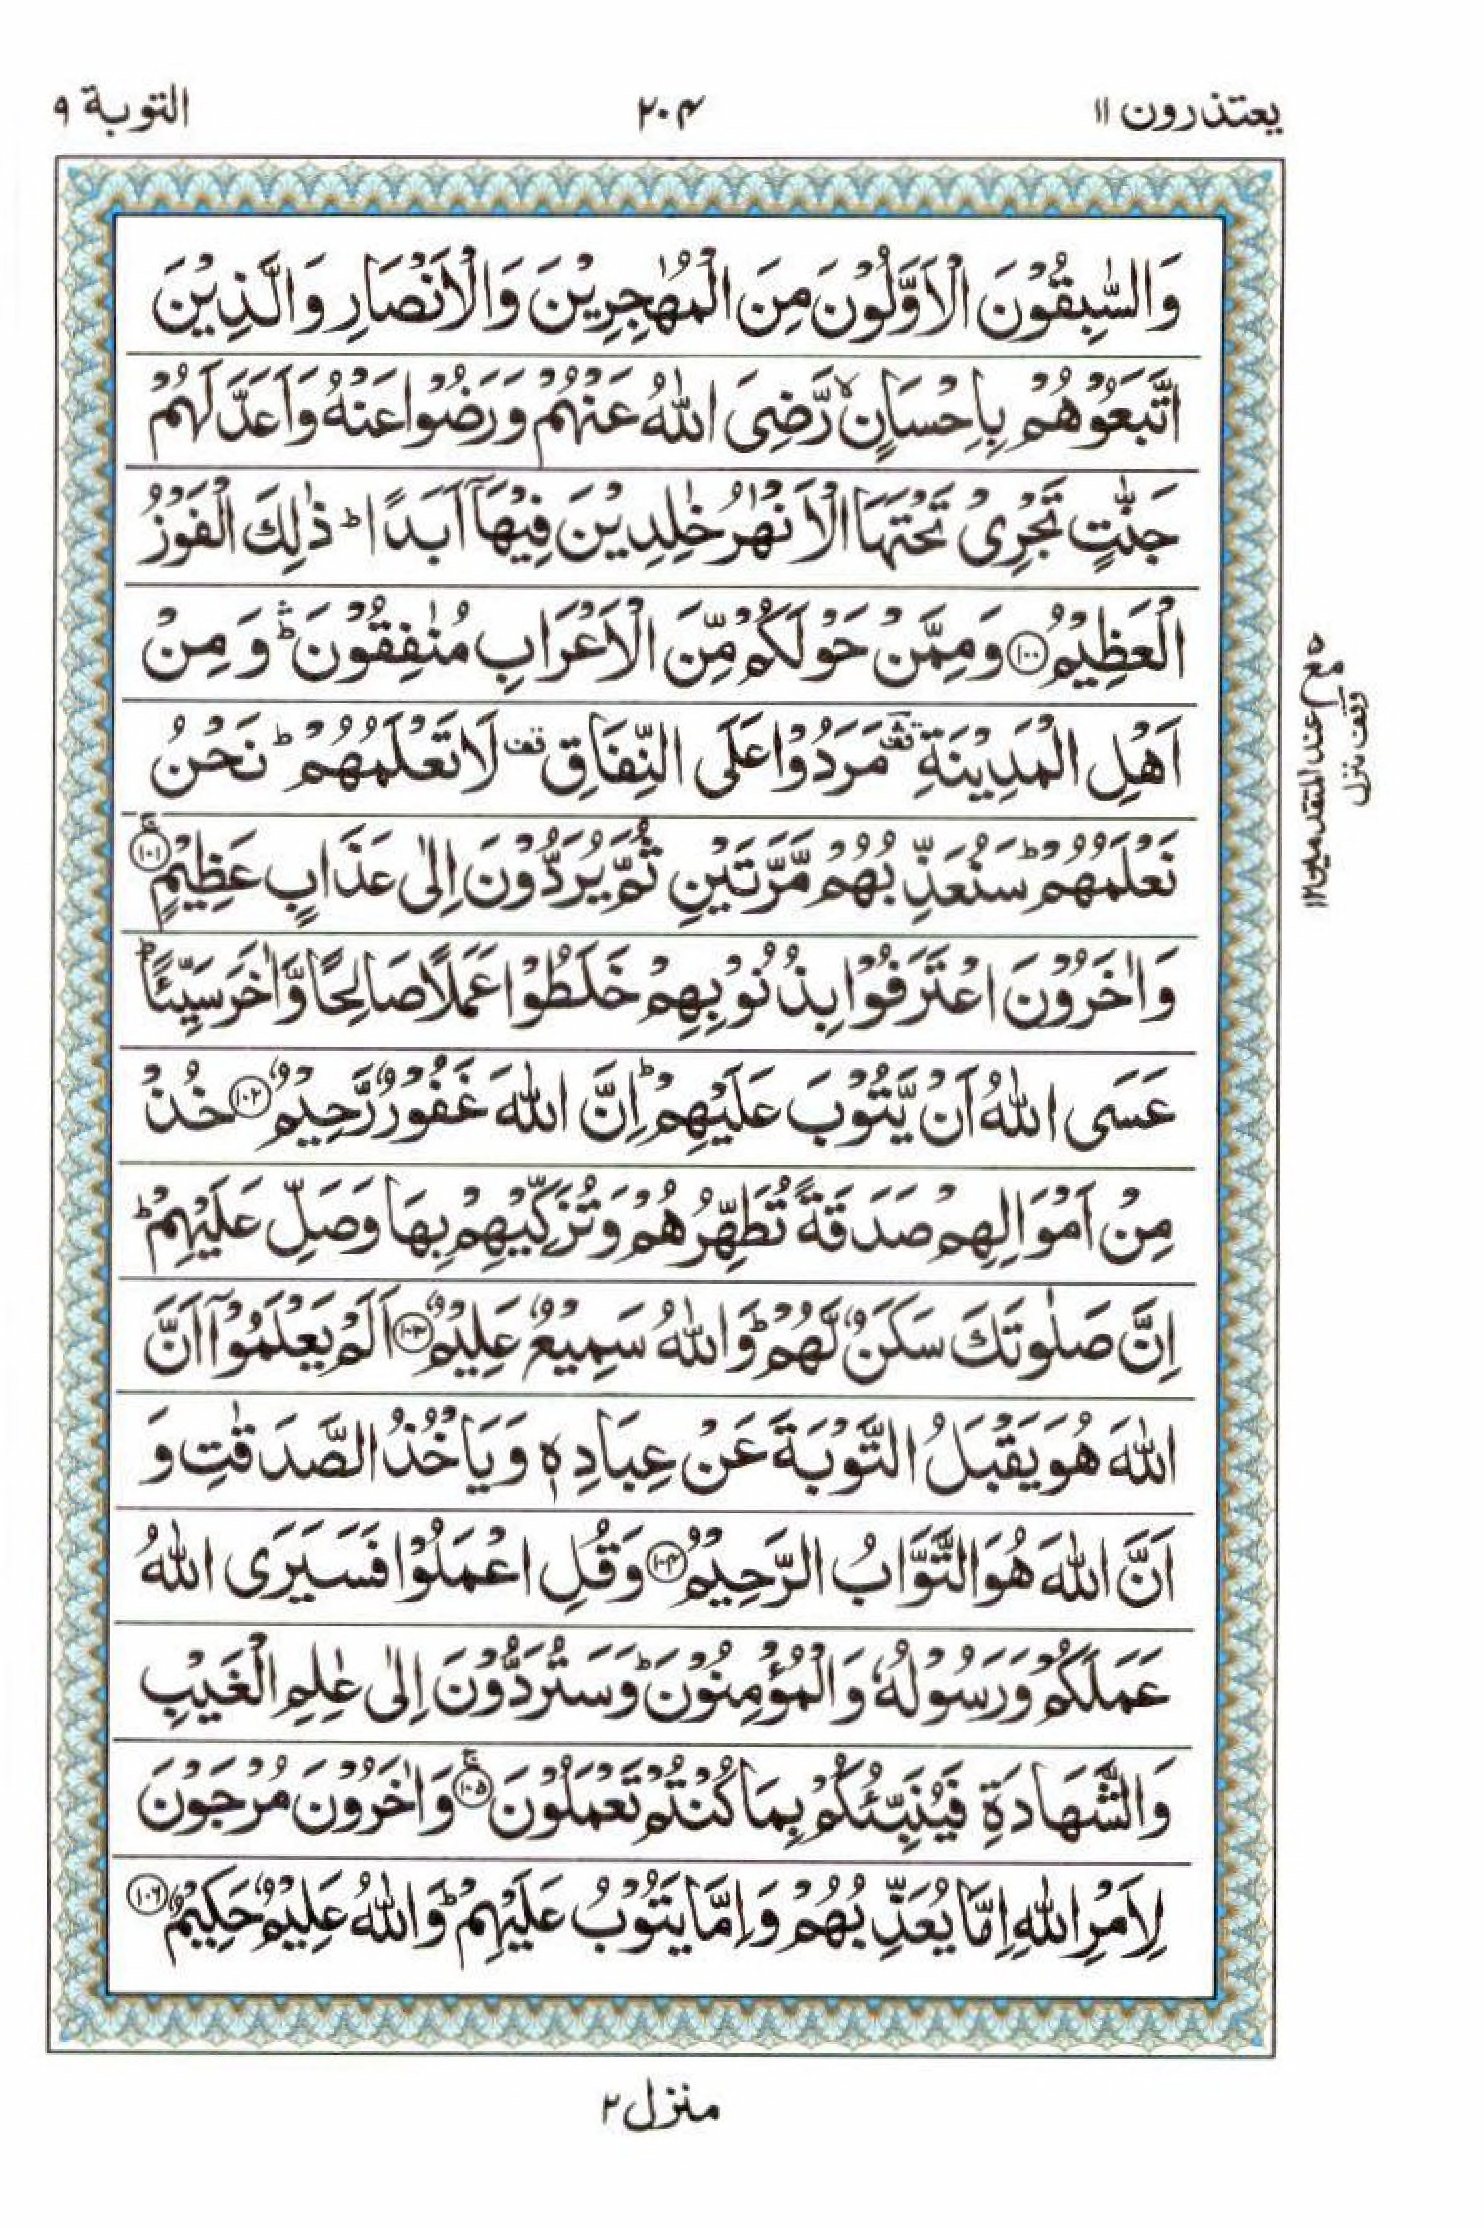 یعتذرون ۱۱
۲۰۴
التوبة ۹
وَالسّٰبِقُوۡنَ الۡاَوَّلُوۡنَ مِنَ الۡمُهٰجِرِيۡنَ وَالۡاَنۡصَارِ وَالَّذِيۡنَ
اتَّبَعُوۡهُمۡ بِاِحۡسَانٍ ۙ رَّضِىَ اللّٰهُ عَنۡهُمۡ وَرَضُوۡا عَنۡهُ وَاَعَدَّ لَهُمۡ
جَنّٰتٍ تَجۡرِىۡ تَحۡتَهَا الۡاَنۡهٰرُ خٰلِدِيۡنَ فِيۡهَاۤ اَبَدًا ؕ ذٰلِكَ الۡفَوۡزُ
الۡعَظِيۡمُ ﴿۱۰۰﴾ وَمِمَّنۡ حَوۡلَكُمۡ مِّنَ الۡاَعۡرَابِ مُنٰفِقُوۡنَ ۛؕ وَمِنۡ
اَهۡلِ الۡمَدِيۡنَةِ ۛ قف مَرَدُوۡا عَلَى النِّفَاقِ قف لَا تَعۡلَمُهُمۡ ؕ نَحۡنُ
نَعۡلَمُهُمۡ ؕ سَنُعَذِّبُهُمۡ مَّرَّتَيۡنِ ثُمَّ يُرَدُّوۡنَ اِلٰى عَذَابٍ عَظِيۡمٍ ۚ﴿۱۰۱﴾
وَاٰخَرُوۡنَ اعۡتَرَفُوۡا بِذُنُوۡبِهِمۡ خَلَطُوۡا عَمَلًا صَالِحًا وَّاٰخَرَ سَيِّئًا ؕ
عَسَى اللّٰهُ اَنۡ يَّتُوۡبَ عَلَيۡهِمۡ ؕ اِنَّ اللّٰهَ غَفُوۡرٌ رَّحِيۡمٌ ﴿۱۰۲﴾ خُذۡ
مِنۡ اَمۡوَالِهِمۡ صَدَقَةً تُطَهِّرُهُمۡ وَتُزَكِّيۡهِمۡ بِهَا وَصَلِّ عَلَيۡهِمۡ ؕ
اِنَّ صَلٰوتَكَ سَكَنٌ لَّهُمۡ ؕ وَاللّٰهُ سَمِيۡعٌ عَلِيۡمٌ ﴿۱۰۳﴾ اَلَمۡ يَعۡلَمُوۡۤا اَنَّ
اللّٰهَ هُوَ يَقۡبَلُ التَّوۡبَةَ عَنۡ عِبَادِهٖ وَيَاۡخُذُ الصَّدَقٰتِ وَ
اَنَّ اللّٰهَ هُوَ التَّوَّابُ الرَّحِيۡمُ ﴿۱۰۴﴾ وَقُلِ اعۡمَلُوۡا فَسَيَرَى اللّٰهُ
عَمَلَكُمۡ وَرَسُوۡلُهٗ وَالۡمُؤۡمِنُوۡنَ ؕ وَسَتُرَدُّوۡنَ اِلٰى عٰلِمِ الۡغَيۡبِ
وَالشَّهَادَةِ فَيُنَبِّئُكُمۡ بِمَا كُنۡتُمۡ تَعۡمَلُوۡنَ ۚ﴿۱۰۵﴾ وَاٰخَرُوۡنَ مُرۡجَوۡنَ
لِاَمۡرِ اللّٰهِ اِمَّا يُعَذِّبُهُمۡ وَاِمَّا يَتُوۡبُ عَلَيۡهِمۡ ؕ وَاللّٰهُ عَلِيۡمٌ حَكِيۡمٌ ﴿۱۰۶﴾
مع ٥
عند المتقدمین ۱۲
وقف منزل
منزل ۲